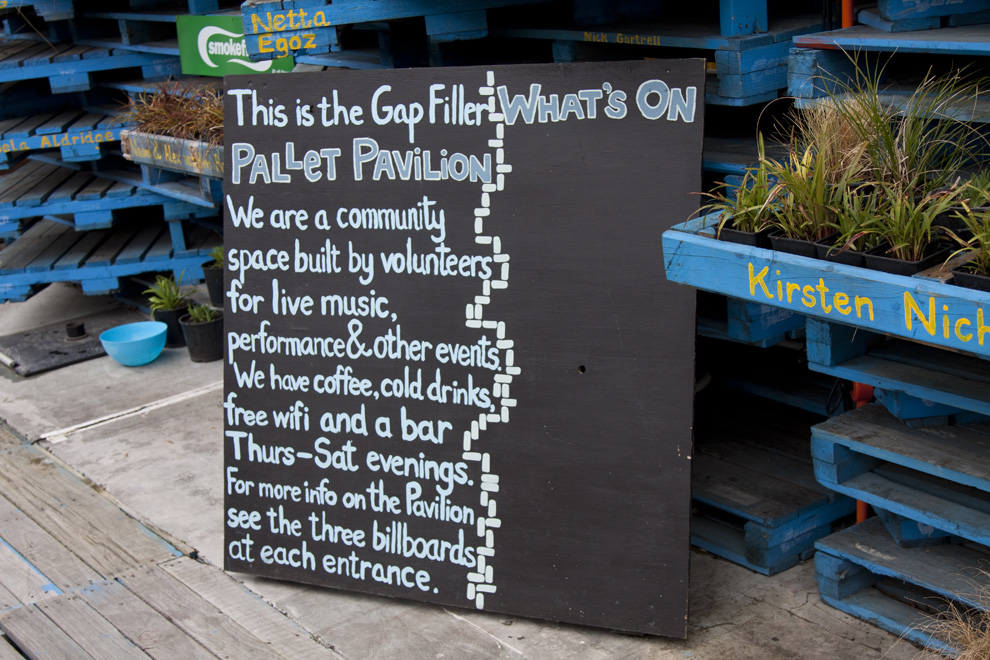 Netta
Egoz
Nick Gartrell
smokef
This is the Gap Filler
WHAT'S ON
PALLET PAVILION
We are a community
space built by volunteers
for live music,
performance & other events.
We have coffee, cold drinks,
free wifi and a bar
Thurs-Sat evenings.
For more info on the Pavilion
see the three billboards
at each entrance.
Aldridge
Kirsten Nich